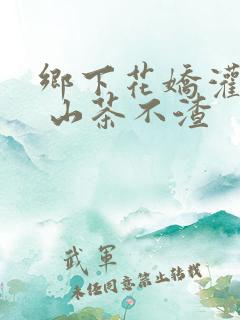 鄉下花嬌灌
山茶不渣
武軍
未经同意禁止转载